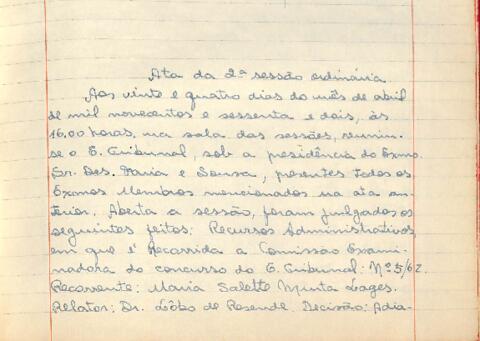 Ata da 2ª sessão ordinária
Aos vinte e quatro dias do mês de abril
de mil novecentos e sessenta e dois, às
16,00 horas, na sala das sessões, reuniu-
se o E. Tribunal, sob a presidência do Exmo.
Sr. Des. Faria e Sousa, presentes todos os
Exmos Membros mencionados na ata an-
terior. Aberta a sessão, foram julgados os
seguintes feitos: Recursos Administrativos,
em que é Recorrida a Comissão Exami-
nadora do concurso do E. Tribunal: Nº 5/62.
Recorrente: Maria Salette Lages.
Relator: Dr. Lôbo de Resende. Decisão: Adia-